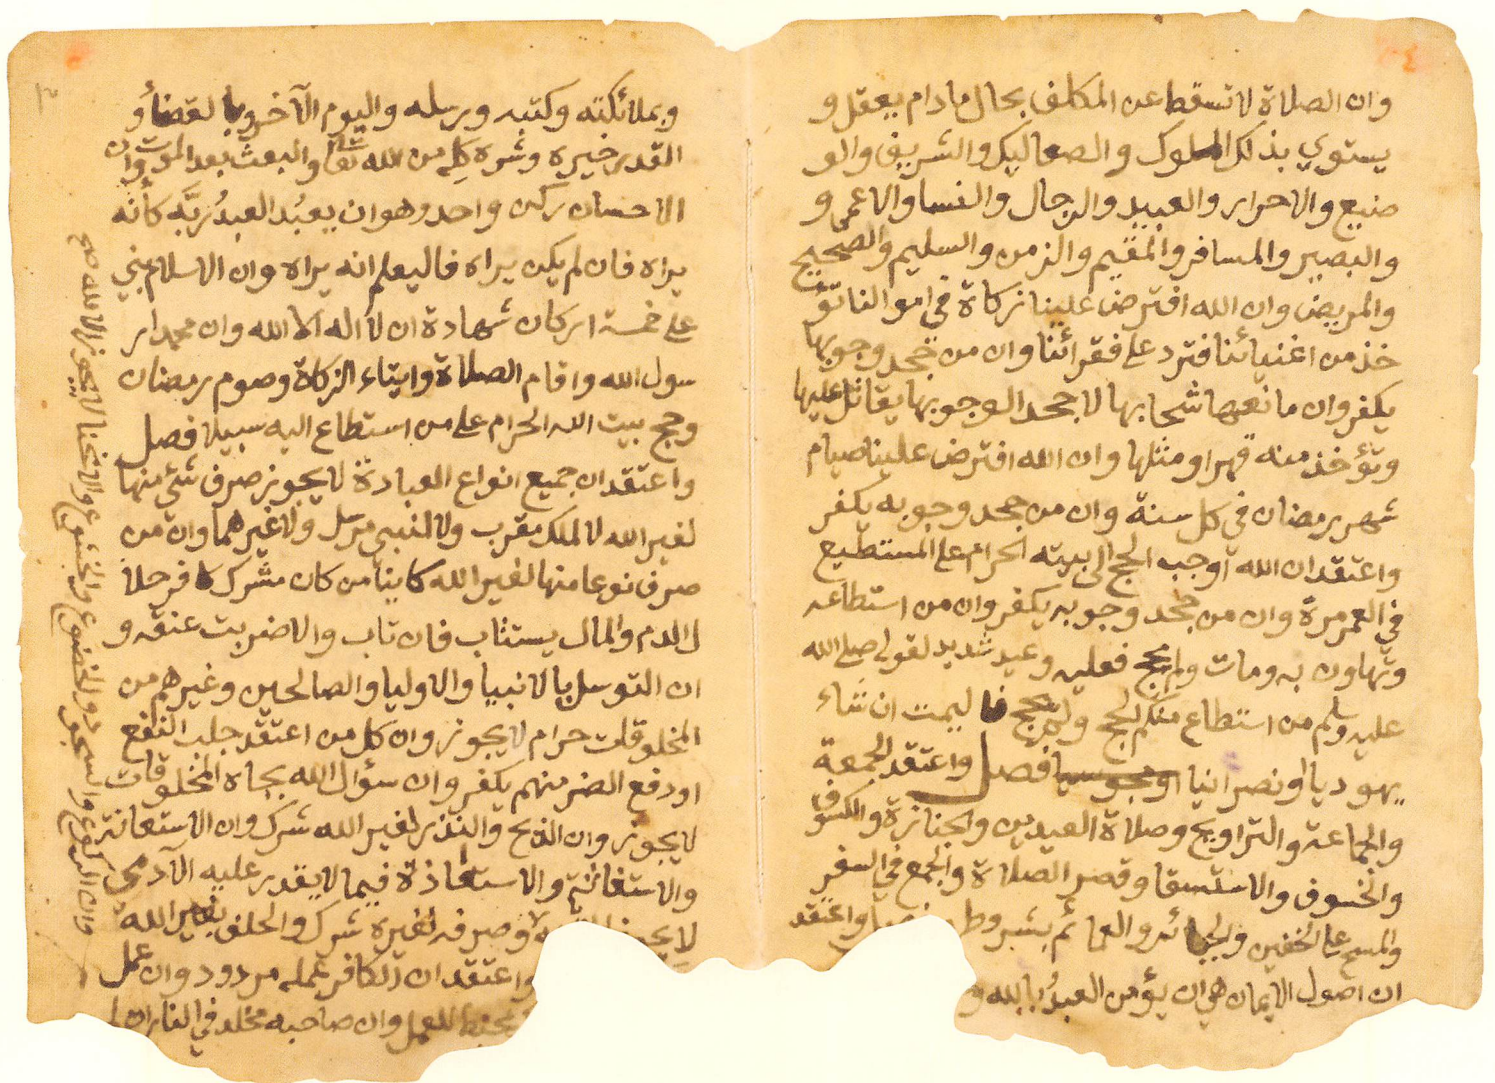 وان الصلاة لا تسقط عن المكلف بحال مادام يعقل و
يستوي بذلك الملوك والصعاليك والشريف والو
ضيع والاحرار والعبيد والرجال والنسا والاعمى و
والبصير والمسافر والمقيم والزمن والسليم والصحيح
والمريض وان الله افترض علينا زكاة في اموالنا تؤ
خذ من اغنيائنا فترد على فقرائنا وان من جحد وجوبها
يكفر وان مانعها شحا بها لا جحدا لوجوبها يقاتل عليها
وتؤخذ منه قهرا ومثلها وان الله افترض علينا صيام
شهر رمضان في كل سنة وان من جحد وجوبه يكفر
واعتقد ان الله أوجب الحج الى بيته الحرام على المستطيع
في العمر مرة وان من جحد وجوبه يكفر وان من استطاعه
وتهاون به ومات ولم يحج فعليه وعيد شديد لقوله صلى الله
عليه وسلم من استطاع منكم الحج ولم يحج فا ليمت ان شاء
يهوديا او نصرانيا او مجوسيا فصل واعتقد الجمعة
والجماعة والتراويح وصلاة العيدين والجنازة والكسوف
والخسوف والاستسقا وقصر الصلاة والجمع في السفر
والمسح على الخفين والجبائر والعمائم بشروط واعتقد
ان اصول الايمان هي ان يؤمن العبدُ بالله و
وبملائكته وكتبه ورسله واليوم الآخر وبالقضاء و
القدر خيره وشره كله من الله تعالى والبعث بعد الموت وان
الاحسان ركن واحد وهو ان يعبُد العبدُ ربَّه كأنه
يراه فان لم يكن يراه فاليعلم انه يراه وان الاسلام بني
على خمسة اركان شهادة ان لا اله الا الله وان محمدا ر
سول الله واقام الصلاة وايتاء الزكاة وصوم رمضان
وحج بيت الله الحرام على من استطاع اليه سبيلا فصل
واعتقد ان جميع انواع العبادة لا يجوز صرف شئ منها
لغير الله لا لملك مقرب ولا لنبي مرسل ولا غيرهما وان من
صرف نوعا منها لغير الله كاينا من كان مشرك كافر حلا
ل الدم والمال يستتاب فان تاب والا ضربت عنقه و
ان التوسل بالانبيا والاوليا والصالحين وغيرهم من
المخلوقات حرام لا يجوز وان كل من اعتقد جلب النفع
او دفع الضر منهم يكفر وان سؤال الله بجاه المخلوقات
لا يجوز وان الذبح والنذر لغير الله شرك وان الاستعانة
والاستغاثة والاستعاذة فيما لا يقدر عليه الآدمي
لا يجوز وصرفه لغيره شرك والحلف بغير الله
واعتقد ان الكافر عمله مردود وان عمل
يحبط العمل وان صاحبه مخلد في النار ان
وان الركوع والسجود والخضوع والخشوع والانحنا لا يجوز الا لله صح